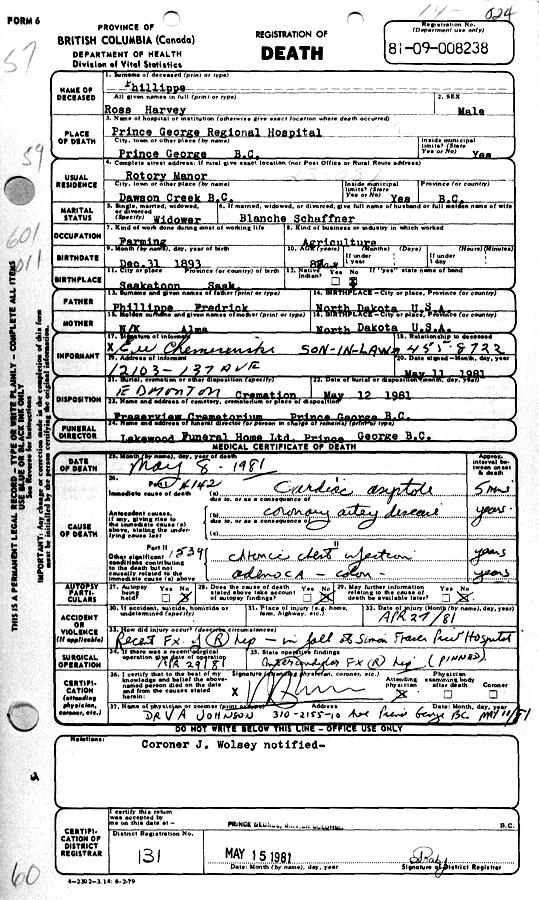 FORM 6
PROVINCE OF
BRITISH COLUMBIA (Canada)
DEPARTMENT OF HEALTH
Division of Vital Statistics
REGISTRATION OF
DEATH
024
Registration No.
(Department use only)
81-09-008238
57
59
601
011
60
THIS IS A PERMANENT LEGAL RECORD - TYPE OR WRITE PLAINLY - COMPLETE ALL ITEMS
USE BLUE OR BLACK INK ONLY
See Reverse for Instructions
IMPORTANT: Any change or correction made in the completion of this form
must be initialled by the person certifying the original information.
NAME OF DECEASED
1. Surname of deceased (print or type)
Phillippe
All given names in full (print or type)
2. SEX
Ross Harvey
Male
PLACE OF DEATH
3. Name of hospital or institution (otherwise give exact location where death occurred)
Prince George Regional Hospital
City, town or other place (by name)
Inside municipal limits? (State Yes or No)
Prince George B.C.
Yes
USUAL RESIDENCE
4. Complete street address: If rural give exact location (not Post Office or Rural Route address)
Rotory Manor
City, town or other place (by name)
Inside municipal limits? (State Yes or No)
Province (or country)
Dawson Creek B.C.
Yes
B.C.
MARITAL STATUS
5. Single, married, widowed, or divorced (Specify)
6. If married, widowed, or divorced, give full name of husband or full maiden name of wife
Widower
Blanche Schaffner
OCCUPATION
7. Kind of work done during most of working life
8. Kind of business or industry in which worked
Farming
Agriculture
BIRTHDATE
9. Month (by name), day, year of birth
10. AGE (Years)
If under 1 year
(Months) (Days)
If under 1 day
(Hours) (Minutes)
Dec.31 1893
BIRTHPLACE
11. City or place
Province (or country) of birth
12. Native Indian?
Yes No
If "yes" state name of band
Saskatoon Sask.
FATHER
13. Surname and given names of father (print or type)
14. BIRTHPLACE - City or place, Province (or country)
Phillippe Fredrick
North Dakota U.S.A.
MOTHER
15. Maiden surname and given names of mother (print or type)
16. BIRTHPLACE - City or place, Province (or country)
N/K Alma
North Dakota U.S.A.
INFORMANT
17. Signature of informant
18. Relationship to deceased
X
SON-IN-LAW
455-8722
19. Address of informant
20. Date signed - Month, day, year
12103-137 AVE
May 11 1981
EDMONTON
DISPOSITION
21. Burial, cremation or other disposition (specify)
22. Date of burial or disposition (month, day, year)
Cremation
May 12 1981
23. Name and address of cemetery, crematorium or place of disposition
Fraserview Crematorium Prince George B.C.
FUNERAL DIRECTOR
24. Name and address of funeral director (or person in charge of remains) (print or type)
Lakewood Funeral Home Ltd. Prince George B.C.
MEDICAL CERTIFICATE OF DEATH
DATE OF DEATH
25. Month (by name), day, year of death
May 8 - 1981
Approx. interval between onset & death
CAUSE OF DEATH
26.
Part I
A142
Immediate cause of death
(a) Cardiac asystole
5 mins
due to, or as a consequence of
Antecedent causes, if any, giving rise to the immediate cause (a) above, stating the underlying cause last
(b) coronary artery disease
years
due to, or as a consequence of
(c)
Part II
1539
II
Other significant conditions contributing to the death but not causally related to the immediate cause (a) above
chronic chest infection
years
adenoCA - colon -
years
AUTOPSY PARTICULARS
27. Autopsy being held?
Yes No
28. Does the cause of death stated above take account of autopsy findings?
Yes No
29. May further information relating to the cause of death be available later?
Yes No
ACCIDENT OR VIOLENCE
(If applicable)
30. If accident, suicide, homicide or undetermined (specify)
31. Place of injury (e.g. home, farm, highway, etc.)
32. Date of injury (Month by name, day, year)
APR 27/81
33. How did injury occur? (describe circumstances)
Recent Fx. of (R) hip - in fall at Simon Fraser Priv Hospital
SURGICAL OPERATION
34. If there was a recent surgical operation give date of operation
APR 29/81
35. State operative findings
Fx (R) hip (PINNED)
CERTIFICATION
(attending physician, coroner, etc.)
36. I certify that to the best of my knowledge and belief the above-named person died on the date and from the causes stated herein
Signature (attending physician, coroner, etc.)
X
Attending physician
Physician examining body after death
Coroner
37. Name of physician or coroner (print or type)
Address
Date: Month, day, year
DR V A JOHNSON
310-2155-10 Ave Prince George BC.
DO NOT WRITE BELOW THIS LINE - OFFICE USE ONLY
Notations:
Coroner J. Wolsey notified-
CERTIFICATION OF DISTRICT REGISTRAR
I certify this return was accepted by me on this date at -
PRINCE GEORGE, BRITISH COLUMBIA
B.C.
District Registration No.
131
MAY 15 1981
Date: Month (by name), day, year
Signature of District Registrar
4-2302-3.14: 6-2-79